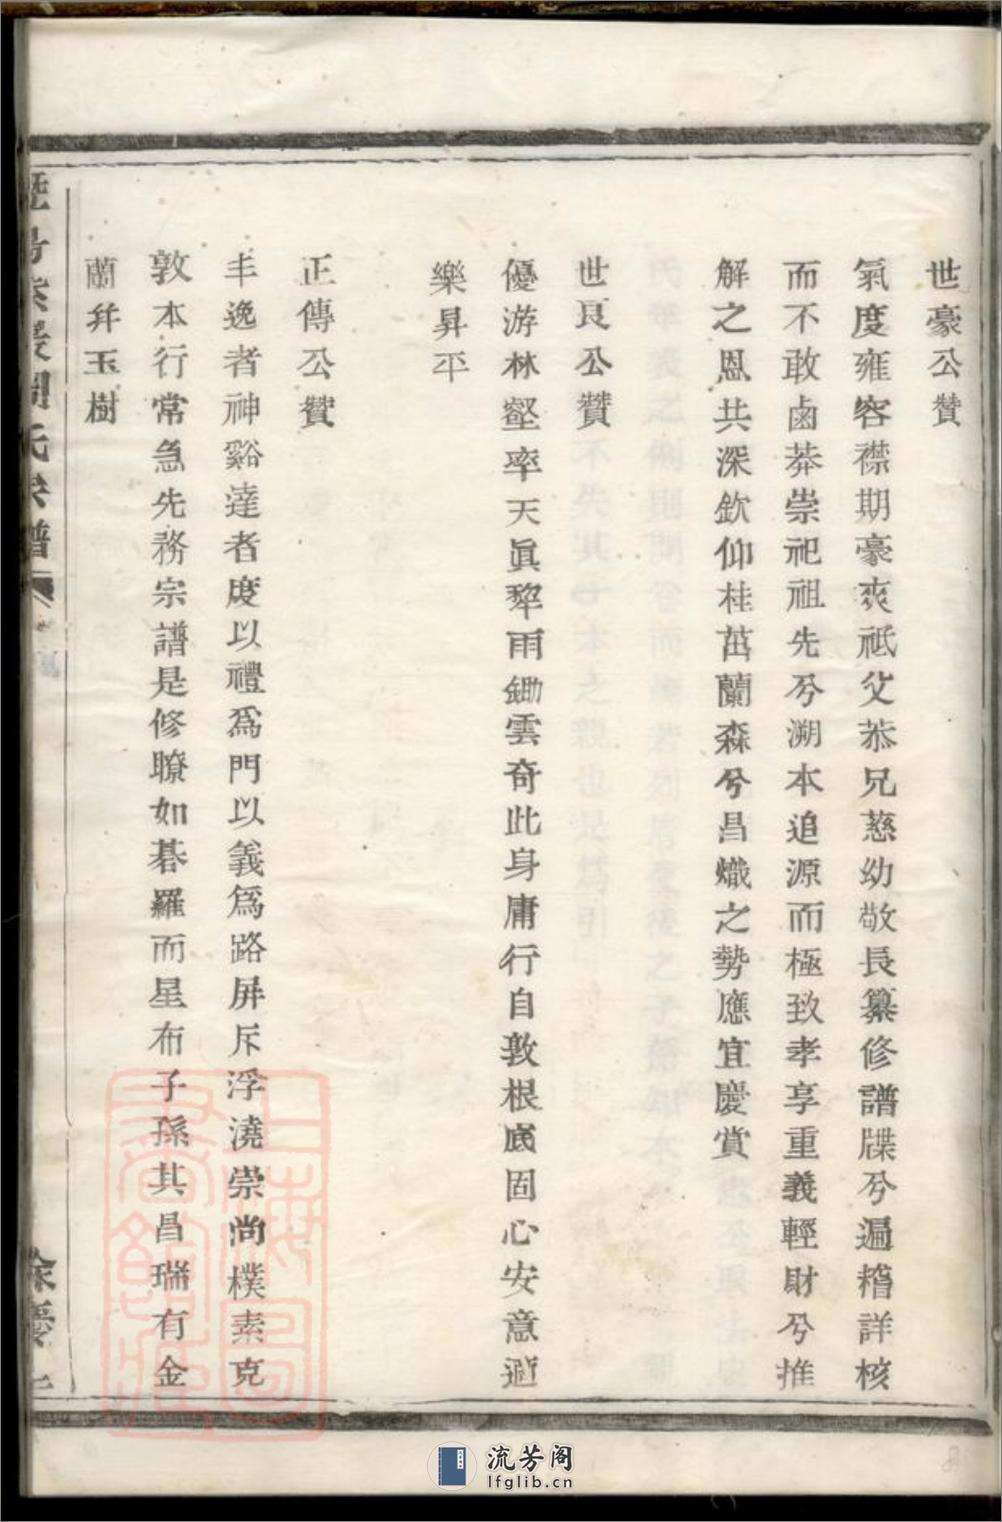 世豪公贊
氣度雍容襟期豪爽祗父恭兄慈幼敬長纂修譜牒兮遍稽詳核
而不敢鹵莽崇祀祖先兮溯本追源而極致孝享重義輕財兮推
解之恩共深欽仰桂茁蘭森兮昌熾之勢應宜慶賞
世良公贊
優游林壑率天眞犂雨鋤雲奇此身庸行自敦根底固心安意適
樂昇平
正傳公贊
丰逸者神谿達者度以禮爲門以義爲路屏斥浮澆崇尚樸素克
敦本行常急先務宗譜是修瞭如碁羅而星布子孫其昌瑞有金
蘭幷玉樹
氏宗譜
餘慶
上海圖書館藏
流芳阁
lfglib.cn